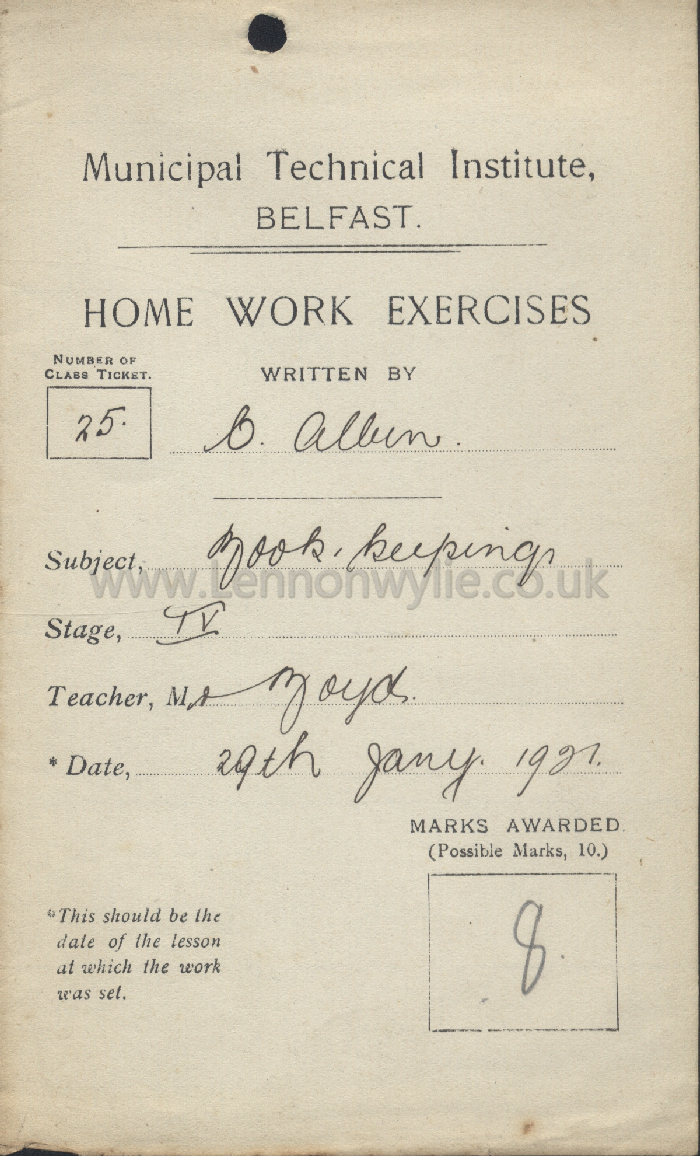 Municipal Technical Institute,
BELFAST.
HOME WORK EXERCISES
NUMBER OF
CLASS TICKET.
WRITTEN BY
25.
Subject, Book-keeping
www.Lennonwylie.co.uk
Stage, IV
Teacher, Mr Boyd.
* Date, 29th Jany. 1921.
MARKS AWARDED
(Possible Marks, 10.)
8.
*This should be the
date of the lesson
at which the work
was set.